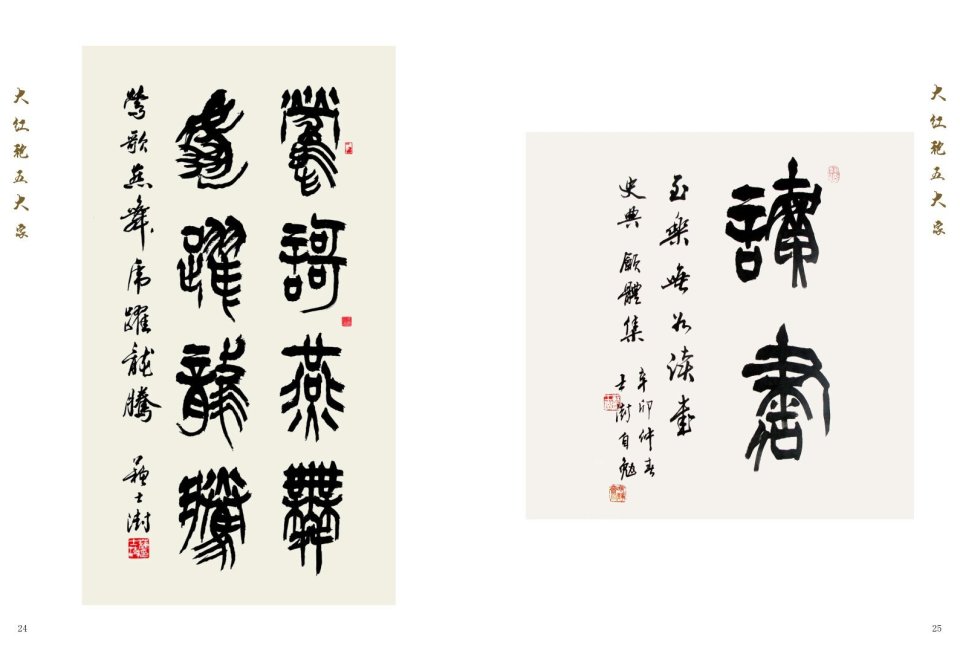 大红袍五大家
鶯謌燕舞
虎躍龍騰
鶯歌燕舞虎躍龍騰
蘇士澍
24
大红袍五大家
讀書
至樂無如读書
史典 體集
辛卯仲春
士澍自勉
25